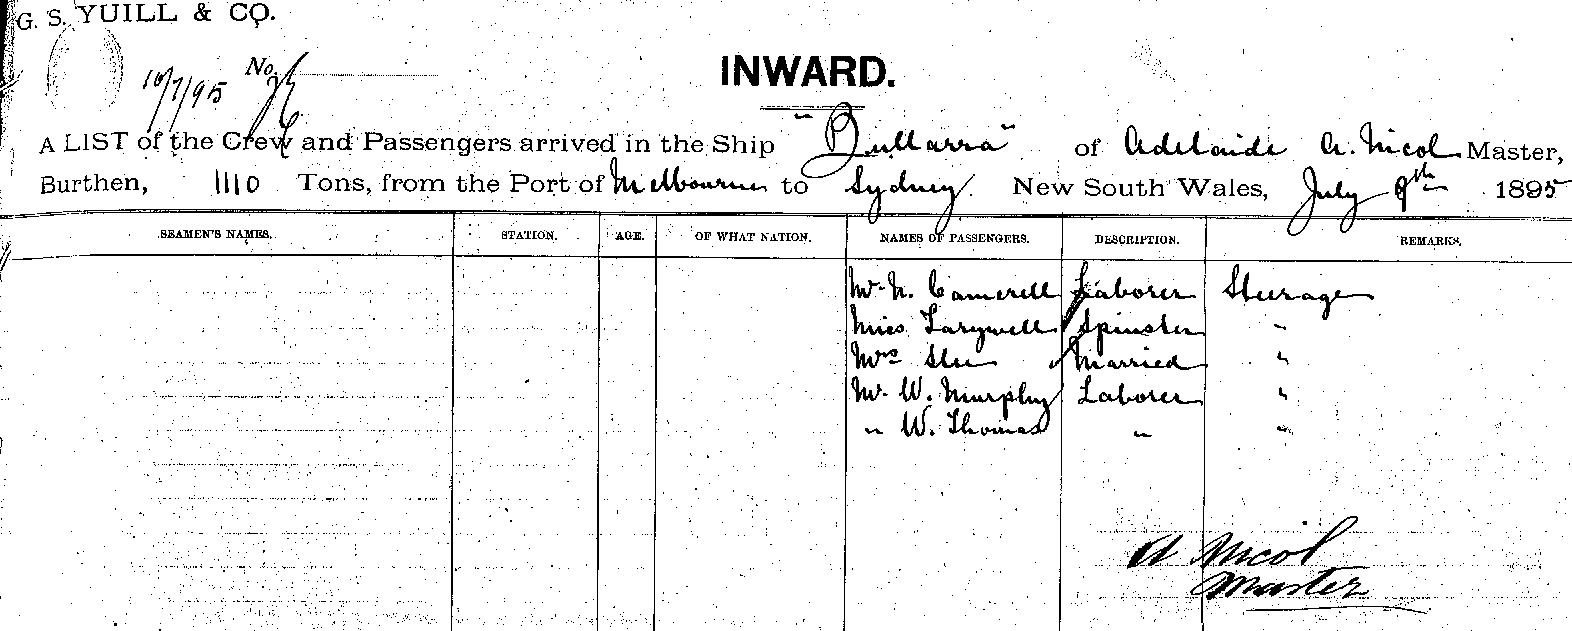 G. S. YUILL & CO.
10/7/95 No
INWARD.
A LIST of the Crew and Passengers arrived in the Ship "Bullarra" of Adelaide A. Nicol Master,
Burthen, 1110 Tons, from the Port of Melbourne to Sydney. New South Wales, July 9th 1895
SEAMEN'S NAMES. STATION. AGE. OF WHAT NATION. NAMES OF PASSENGERS. DESCRIPTION. REMARKS.
Mr N. Camerell Laborer Steerage
Miss Spinster "
Mrs Married "
Mr. W. Murphy Laborer "
" W. Thomas " "
A Nicol
Master